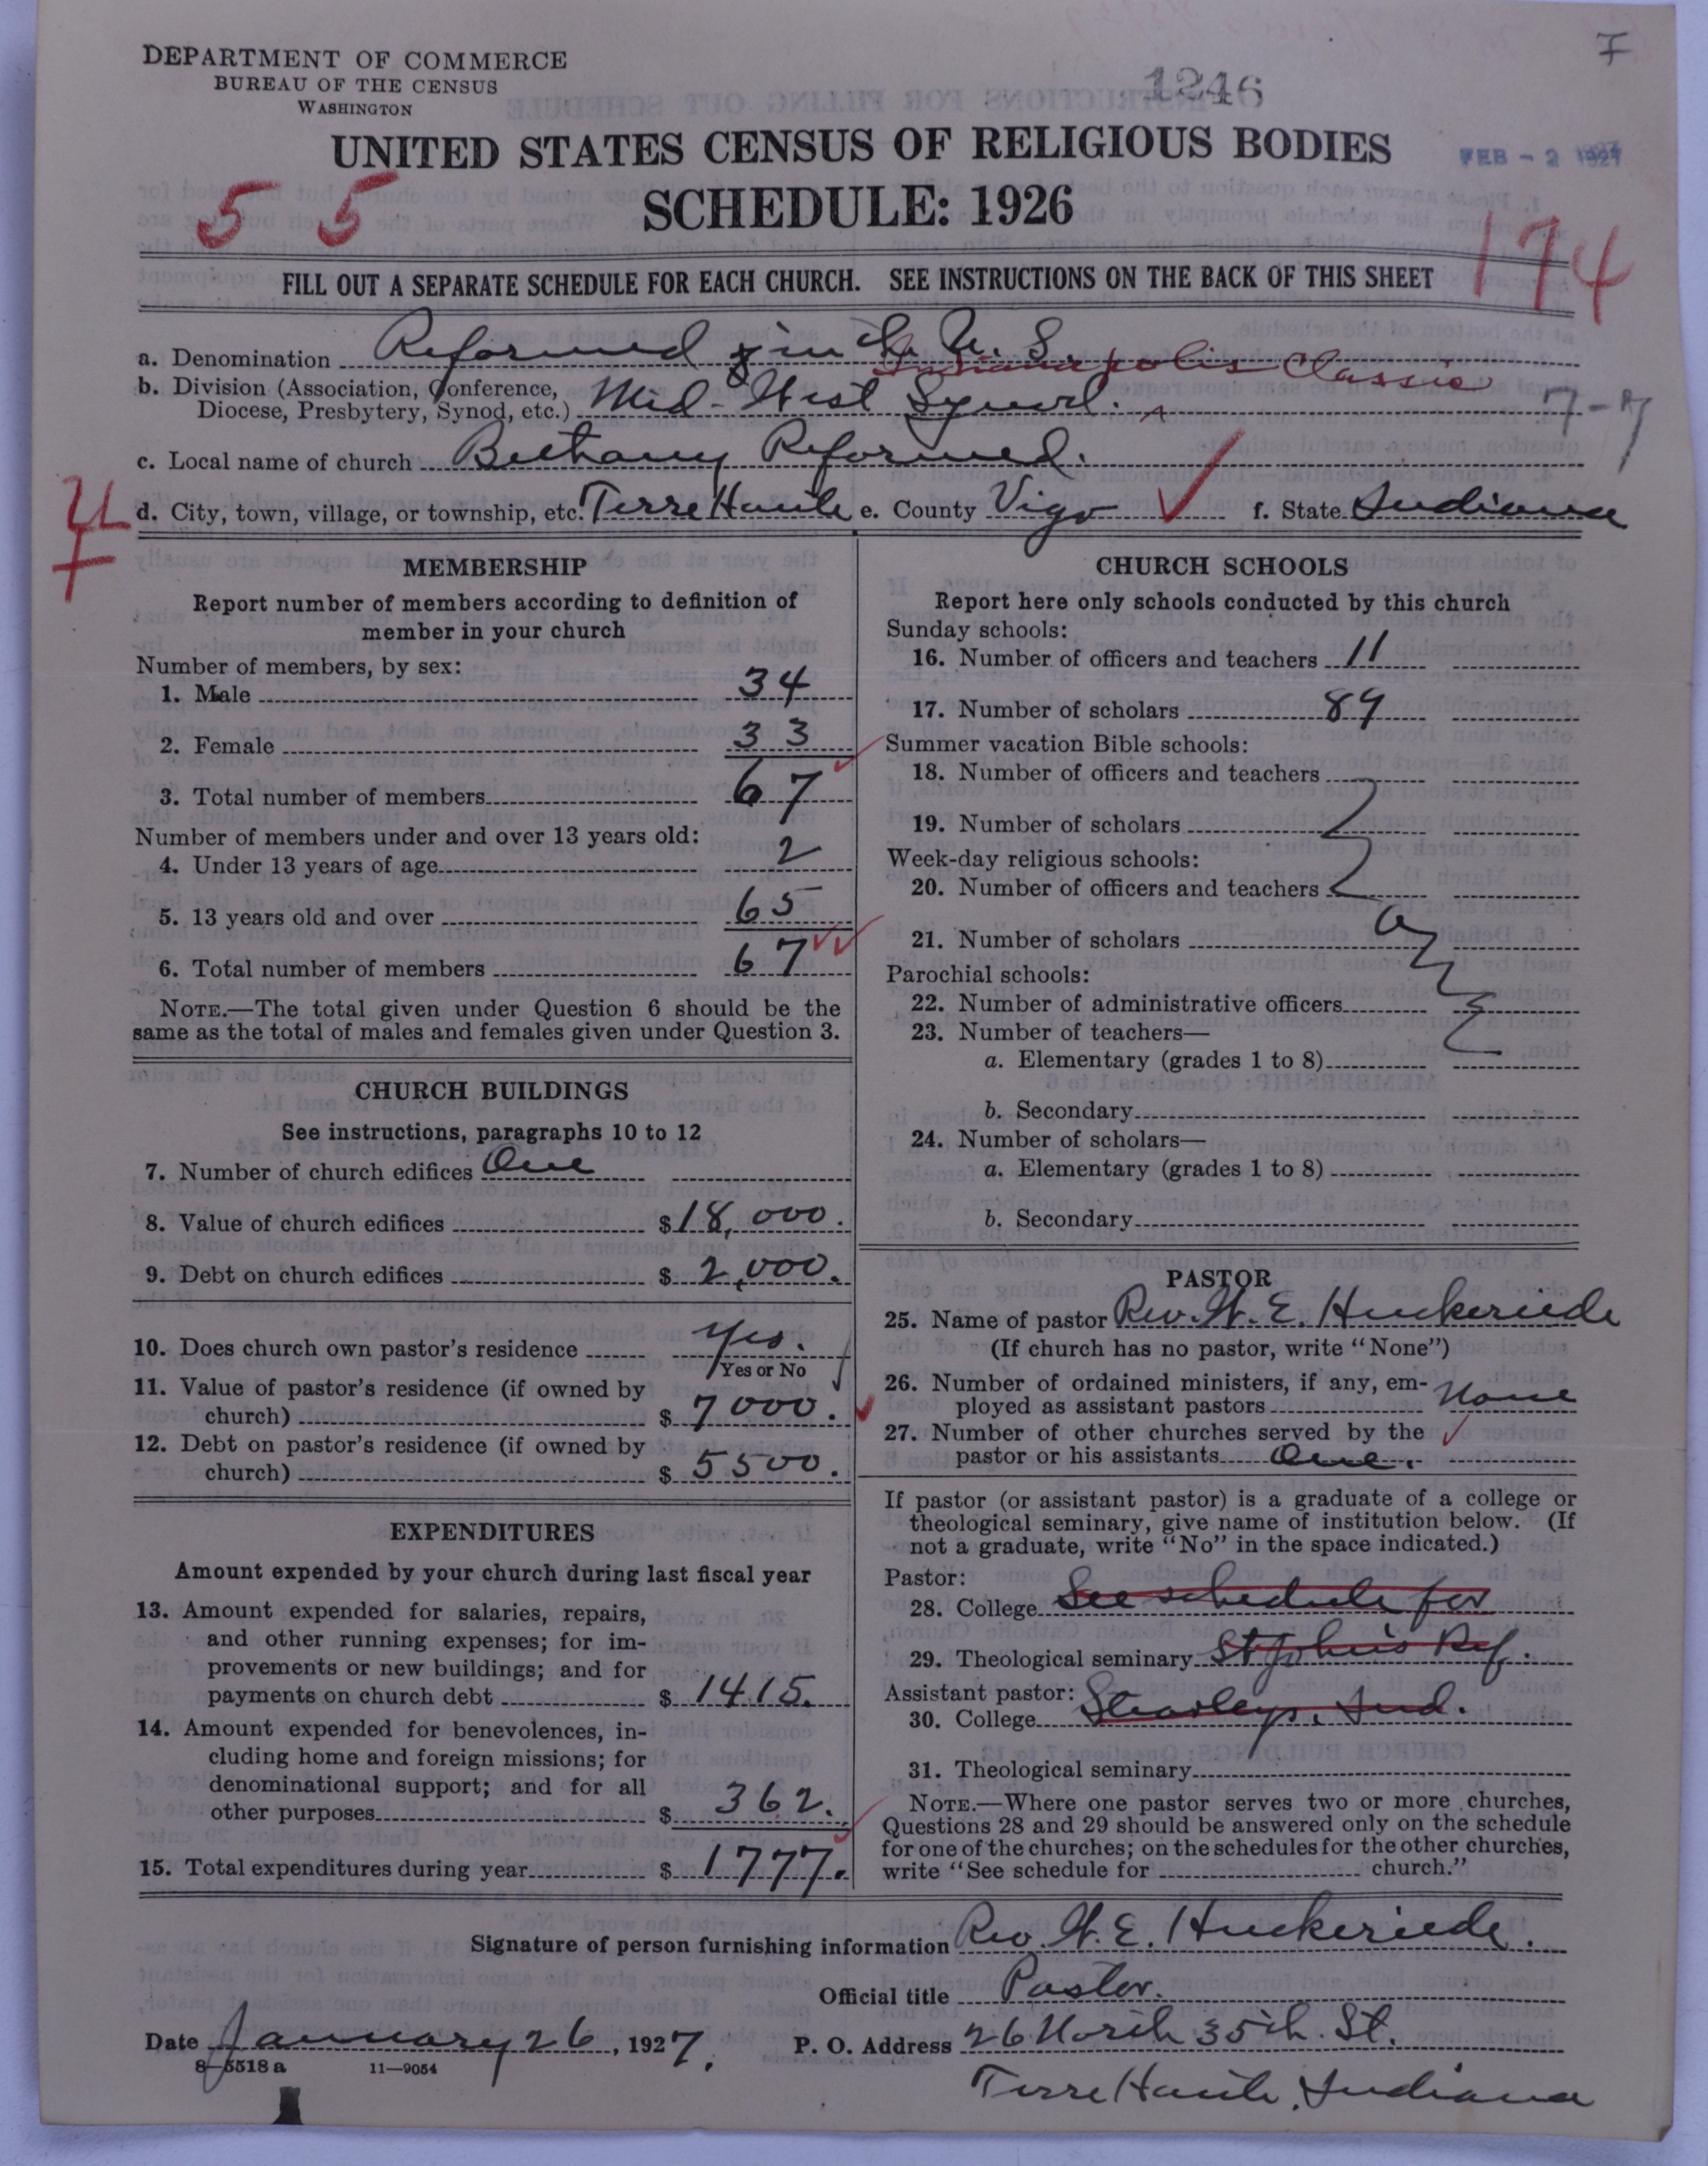 DEPARTMENT OF COMMERCE
BUREAU OF THE CENSUS
WASHINGTON
1246
7
UNITED STATES CENSUS OF RELIGIOUS BODIES
FEB - 2 1927
SCHEDULE: 1926
5 5
174
FILL OUT A SEPARATE SCHEDULE FOR EACH CHURCH. SEE INSTRUCTIONS ON THE BACK OF THIS SHEET
a. Denomination Reformed in the U. S.
Indianapolis Classis
b. Division (Association, Conference,
Diocese, Presbytery, Synod, etc.) Mid-West Synod.
7-7
c. Local name of church Bethany Reformed.
d. City, town, village, or township, etc. Terre Haute e. County Vigo f. State Indiana
MEMBERSHIP
Report number of members according to definition of
member in your church
Number of members, by sex:
1. Male 34
2. Female 33
3. Total number of members 67
Number of members under and over 13 years old:
4. Under 13 years of age 2
5. 13 years old and over 65
6. Total number of members 67
NOTE.—The total given under Question 6 should be the
same as the total of males and females given under Question 3.
CHURCH BUILDINGS
See instructions, paragraphs 10 to 12
7. Number of church edifices One
8. Value of church edifices $ 18,000.
9. Debt on church edifices $ 2,000.
10. Does church own pastor's residence Yes.
Yes or No
11. Value of pastor's residence (if owned by
church) $ 7000.
12. Debt on pastor's residence (if owned by
church) $ 5500.
EXPENDITURES
Amount expended by your church during last fiscal year
13. Amount expended for salaries, repairs,
and other running expenses; for im-
provements or new buildings; and for
payments on church debt $ 1415.
14. Amount expended for benevolences, in-
cluding home and foreign missions; for
denominational support; and for all
other purposes $ 362.
15. Total expenditures during year $ 1777.
CHURCH SCHOOLS
Report here only schools conducted by this church
Sunday schools:
16. Number of officers and teachers 11
17. Number of scholars 89
Summer vacation Bible schools:
18. Number of officers and teachers
19. Number of scholars
Week-day religious schools:
20. Number of officers and teachers
21. Number of scholars
Parochial schools:
22. Number of administrative officers
23. Number of teachers—
a. Elementary (grades 1 to 8)
b. Secondary
24. Number of scholars—
a. Elementary (grades 1 to 8)
b. Secondary
PASTOR
25. Name of pastor Rev. W. E. Huckeriede
(If church has no pastor, write "None")
26. Number of ordained ministers, if any, em-
ployed as assistant pastors None
27. Number of other churches served by the
pastor or his assistants One.
If pastor (or assistant pastor) is a graduate of a college or
theological seminary, give name of institution below. (If
not a graduate, write "No" in the space indicated.)
Pastor:
28. College See schedule for
29. Theological seminary St John's Ref.
Assistant pastor:
30. College Stearleys, Ind.
31. Theological seminary
NOTE.—Where one pastor serves two or more churches,
Questions 28 and 29 should be answered only on the schedule
for one of the churches; on the schedules for the other churches,
write "See schedule for church."
Signature of person furnishing information Rev. W. E. Huckeriede.
Official title Pastor.
Date January 26, 1927. P. O. Address 26 North 35th. St.
8—5518 a 11—9054
Terre Haute, Indiana